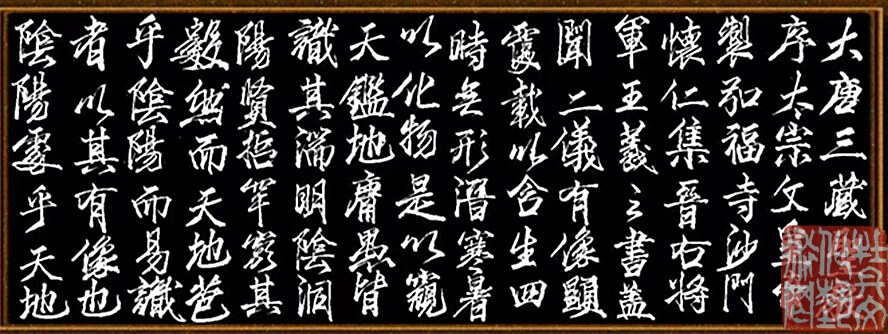 大唐三藏
序太宗文皇
製弘福寺沙門
懷仁集晉右將
軍王羲之書蓋
聞二儀有像顯
覆載以含生四
時无形潛寒暑
以化物是以窺
天鑑地庸愚皆
識其端明陰洞
陽賢哲罕窮其
數然而天地苞
乎陰陽而易識
者以其有像也
陰陽處乎天地